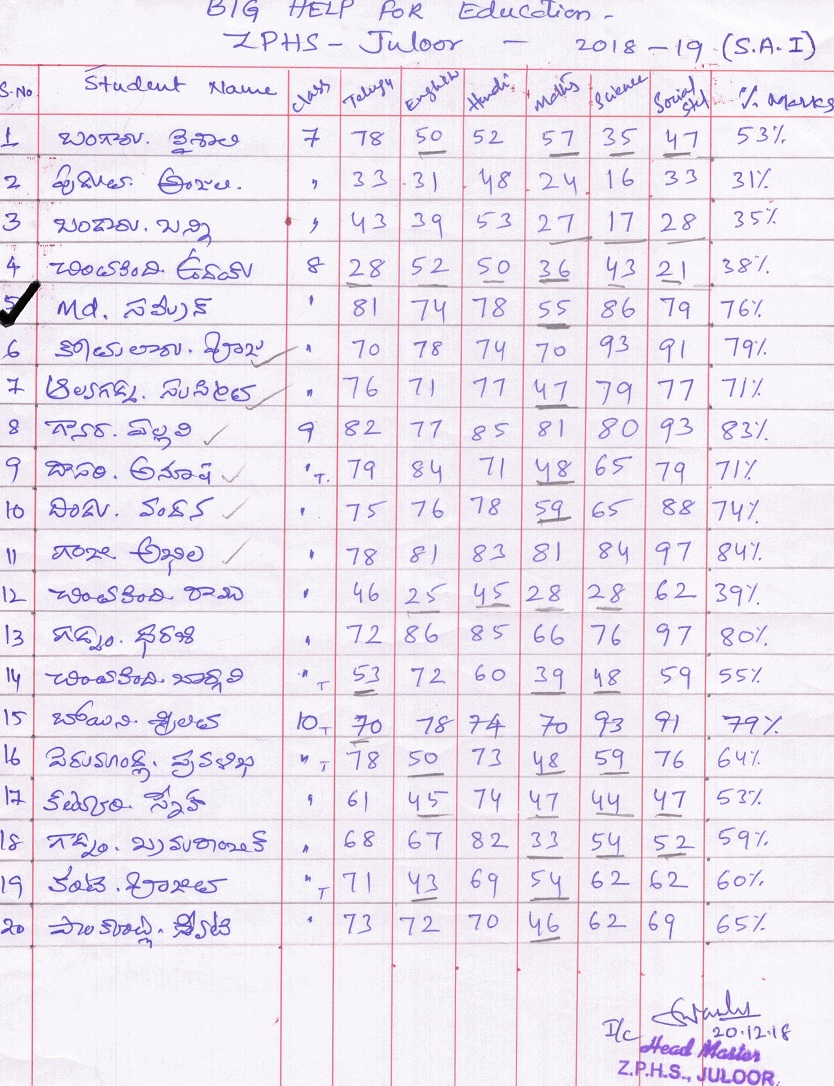 BIG HELP FOR Education -
ZPHS - Juloor - 2018-19 (S.A.I)
S.No Student Name Class Telugu English Hindi Maths Science Social Stud % Marks
1 బండారు. వైశాలి 7 78 50 52 57 35 47 53%
2 అంజలి. " 33 31 48 24 16 33 31%
3 బండారు. బన్ని " 43 39 53 27 17 28 35%
4 చింతకింది. ఉదయ్ 8 28 52 50 36 43 21 38%
5 Md. సమ్రీన్ " 81 74 78 55 86 79 76%
6 " 70 78 74 70 93 91 79%
7 " 76 71 77 47 79 77 71%
8 పల్లవి 9 82 77 85 81 80 93 83%
9 దాసరి. అనూష " T. 79 84 71 48 65 79 71%
10 దిండు. వందన " 75 76 78 59 65 88 74%
11 గంజి అఖిల " 78 81 83 81 84 97 84%
12 చింతకింది రాము " 46 25 45 28 28 62 39%
13 గడ్డం. ధరణి " 72 86 85 66 76 97 80%
14 చింతకింది. భార్గవి " T 53 72 60 39 48 59 55%
15 బోయిని. శ్రీలత 10 T 70 78 74 70 93 91 79%
16 ప్రవళిఖ " T 78 50 73 48 59 76 64%
17 " 61 45 74 47 44 47 53%
18 గడ్డం. " 68 67 82 33 54 52 59%
19 " T 71 43 69 54 62 62 60%
20 " 73 72 70 46 62 69 65%
I/c 20.12.18
Head Master
Z.P.H.S., JULOOR.